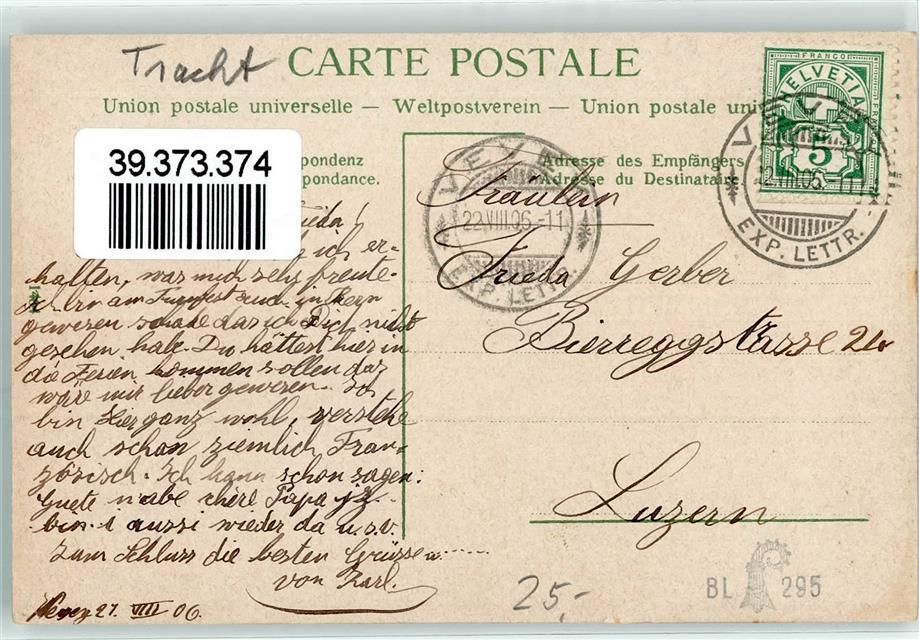 Tracht CARTE POSTALE
Union postale universelle — Weltpostverein — Union postale uni
FRANCO
HELVETIA
5
VEVEY
22.VIII.06.-11
EXP. LETTR.
39.373.374
pondenz
pondance.
Adresse des Empfängers
Adresse du Destinataire
VEVEY
22.VIII.06.-11
EXP. LETTR.
Fräulein
Frieda Gerber
Bierreggstrasse
Luzern
Frieda!
ich er-
halten, was mich sehr freute.
Ich bin am auch in Bern
gewesen schade das ich Dich nicht
gesehen habe. Du hättest hier in
die Ferien kommen sollen das
wäre mir lieber gewesen. Ich
bin hier ganz wohl, verstehe
auch schon ziemlich Fran-
zösisch. Ich kann schon sagen:
Guete n'abe chère Papa
bin i aussi wieder da u.s.v.
Zum Schluss die besten Grüsse
von Karl.
Vevey 21. VIII 06.
25.-
BL 295